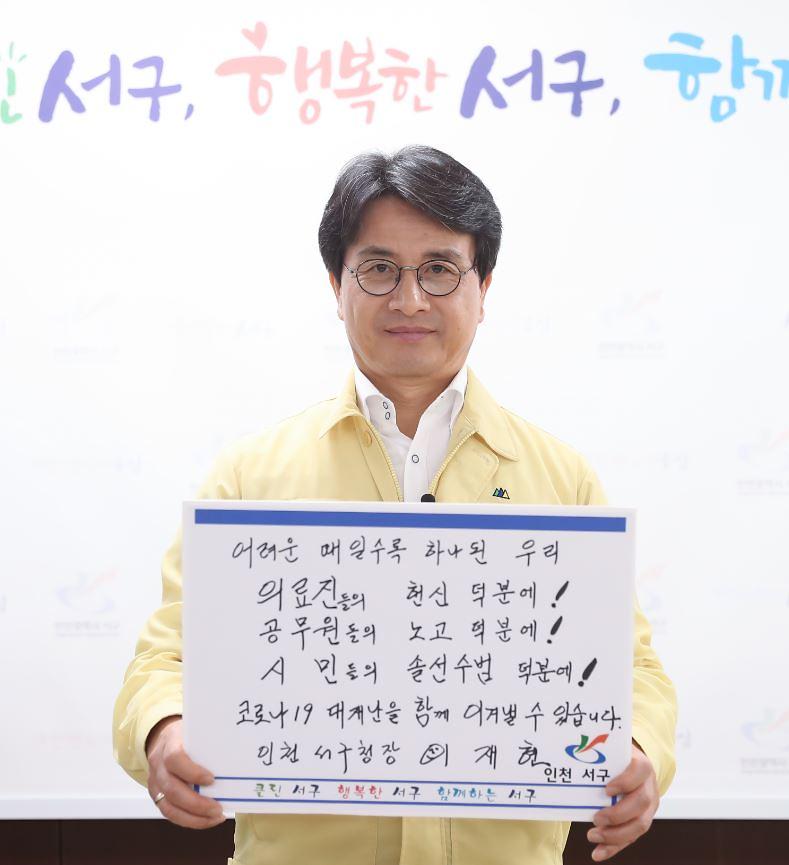 서구, 행복한 서구, 함께
어려운 때일수록 하나된 우리
의료진들의 헌신 덕분에!
공무원들의 노고 덕분에!
시민들의 솔선수범 덕분에!
코로나19 대재난을 함께 이겨낼 수 있습니다.
인천 서구청장 이재현
인천 서구
클린 서구 행복한 서구 함께하는 서구